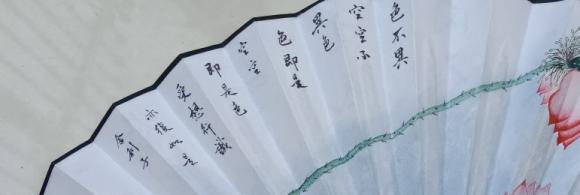 色不異
空空不
異色
色即是
空空
即是色
受想行識
亦復如是
舍利子